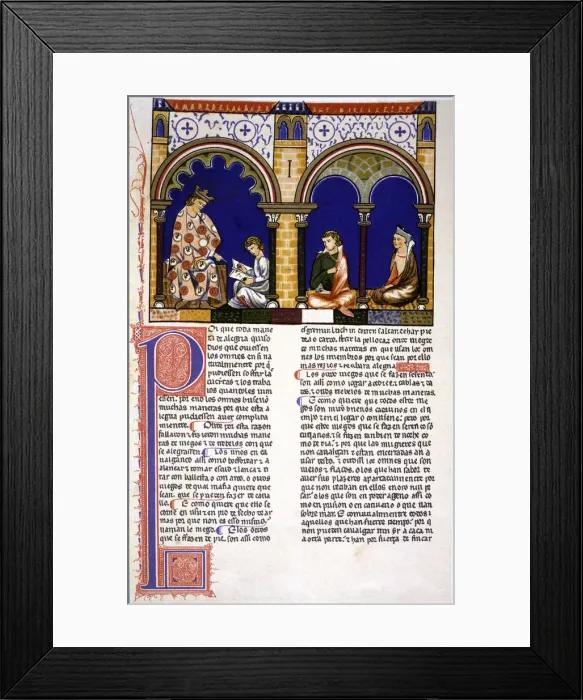 I
Por que toda mane
ra de alegria quiso
dios que ouiessen
los omnes en si na
turalmientre por q
pudiessen soffrir las
cueitas & los traba
ios quando les uini
essen, por end los omnes buscaron
muchas maneras por que esta a
legria pudiessen auer complida
mientre. Onde por esta razon
fallaron & fizieron muchas mane
ras de iuegos & de trebeios con que
se alegrassen. Los unos en ca
ualgando assi como bofordar & a
alançar & tomar escud & lança & ti
rar con ballesta o con arco, o otros
iuegos de qual manera quiere que
sean, que se pueden fazer de caua
llo. E como quiere que esso se
torne en usu & en pro de fecho de ar
mas por que non es esso mismo
llaman le iuego. E los otros
que se fazen de pie, son assi como
esgremir luchar correr saltar echar pie
dra o dardo, ferir la pellota, & otros iuegos
de muchas naturas en que usan los om
nes los miembros por que sean por ello
mas rezios & reciban alegria
Los otros iuegos que se fazen seyendo,
son assi como iogar acedrex & tablas & da
dos, & otros trebeios de muchas maneras.
E como quiere que todos estos iue
gos son muy buenos cadaunos en el ti
empo & en el logar o conuienen, pero por
que estos iuegos que se fazen seyendo son
cutianos, & se fazen tanbien de noche co
mo de dia, & por que las mugieres que
non caualgan & estan encerradas an a
usar desto, & otrossi los omnes que son
uieios & flacos, o los que han sabor de
auer sus plazeres apartadamientre por
que non reciban en ellos enoio nin pe
sar, o los que son en poder ageno assi co
mo en prision o en catiuerio o que uan
sobre mar. E comunalmientre todos
aquellos que han fuerte tiempo, por q
non pueden caualgar nin yr a caça ni
a otra parte, & han por fuerça de fincar